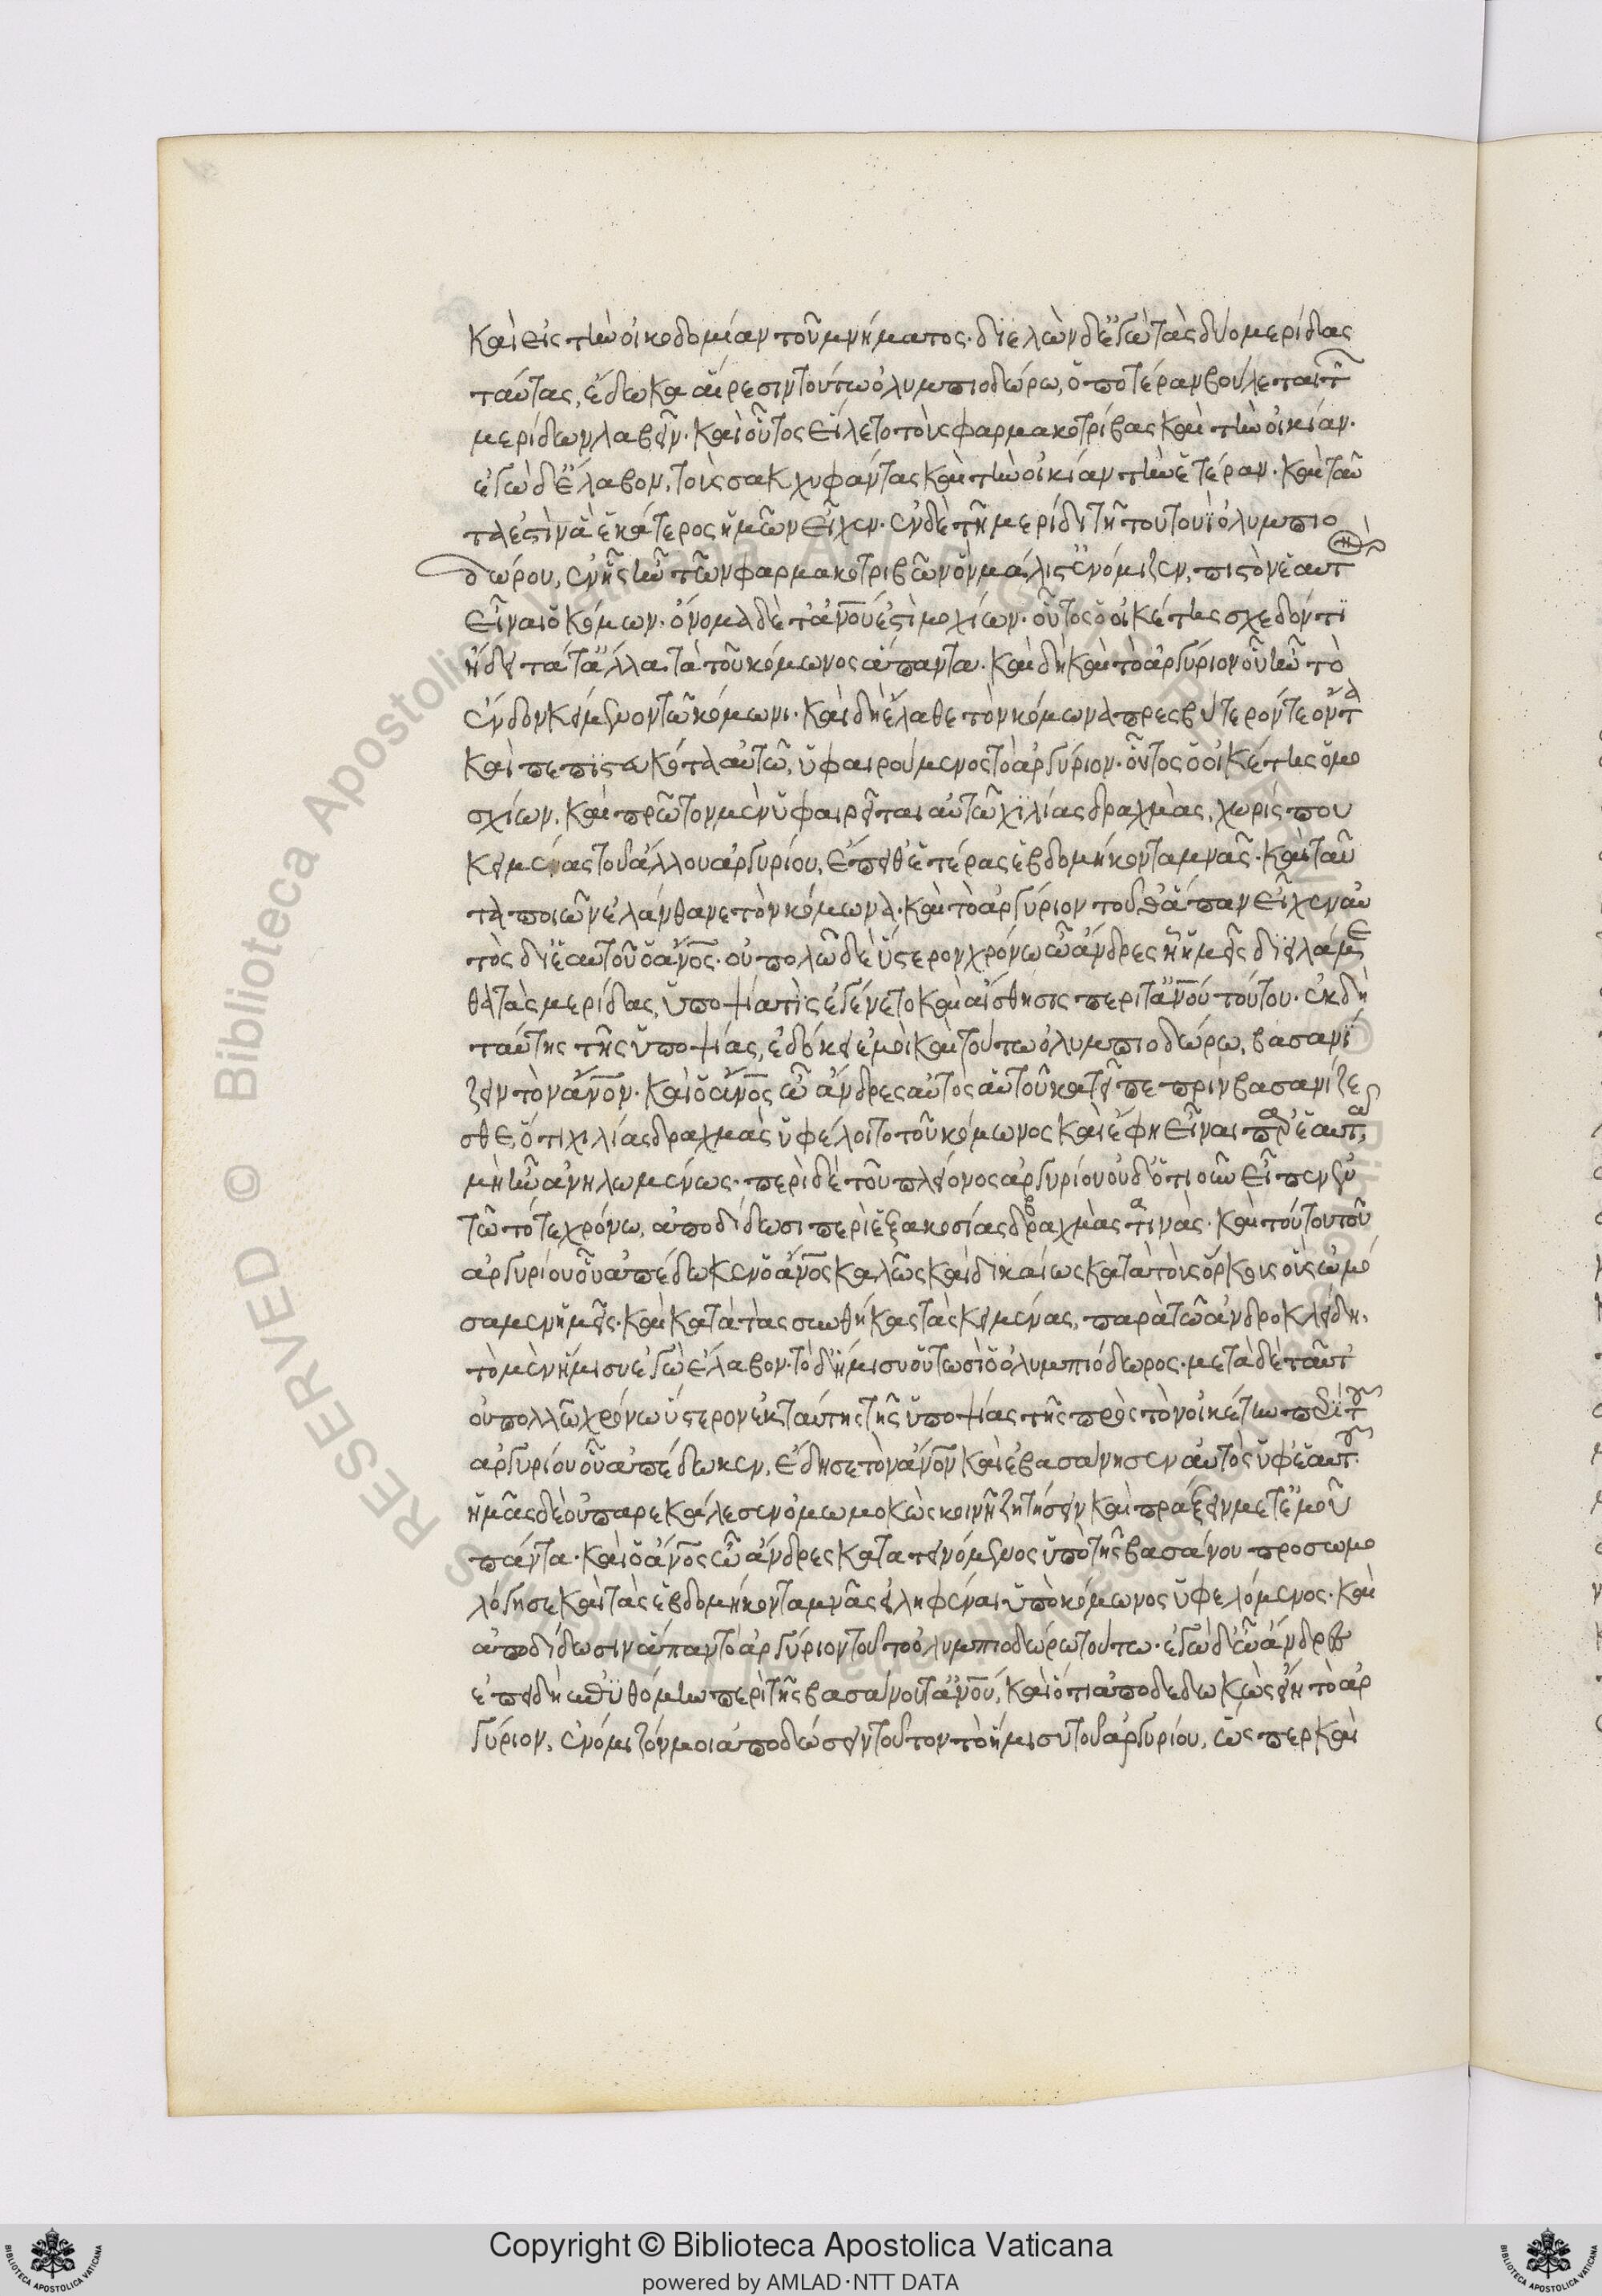 καὶ εἰς τὴν οἰκοδομίαν τοῦ μνήματος· διελὼν δ' ἐγὼ τὰς δύο μερίδας
ταύτας, ἔδωκα αἵρεσιν τουτωΐ ὀλυμπιοδώρω, ὁποτέραν βούλεται τῶν
μερίδων λαβεῖν· καὶ οὗτος εἵλετο τοὺς φαρμακοτρίβας καὶ τὴν οἰκίαν·
ἐγὼ δ' ἔλαβον, τοὺς σακχυφάντας καὶ τὴν οἰκίαν τὴν ἑτέραν· καὶ ταῦ
τα ἐστὶν ἃ ἑκάτερος ἡμῶν εἶχεν· ἐν δὲ τῇ μερίδι τῇ τουτουῒ ὀλυμπιο
δώρου, ἐν ᾗς ἦν τῶν φαρμακοτριβῶν ὃν μάλιστ' ἐνόμιζεν, πιστὸν ἑαυτῶ
εἶναι ὁ κόμων· ὄνομα δὲ τῶ ἀνου ἐστὶ μοχίων· οὗτος ὁ οἰκέτης σχεδόν τι
ἤδει τά τ' ἄλλα τὰ τοῦ κόμωνος ἅπαντα· καὶ δὴ καὶ τὸ ἀργύριον οὗ ἦν τὸ
ἔνδον κείμενον τῶ κόμωνι· καὶ δὴ ἔλαθε τὸν κόμωνα πρεσβύτερόν τε ὄντα
καὶ πεπιστευκότα αὐτῶ, ὑφαιρούμενος τὸ ἀργύριον· οὗτος ὁ οἰκέτης ὁ μο
σχίων· καὶ πρῶτον μὲν ὑφαιρεῖται αὐτῶ χιλίας δραχμὰς, χωρίς που
κειμένας τοῦ ἄλλου ἀργυρίου, ἔπειθ' ἑτέρας ἑβδομήκοντα μνᾶς· καὶ ταῦ
τα ποιῶν ἐλάνθανε τὸν κόμωνα· καὶ τὸ ἀργύριον τοῦθ' ἅπαν εἶχεν αὐ
τὸς δι' ἑαυτοῦ ὁ ἄνος· οὐ πολῶ δὲ ὕστερον χρόνω ὦ ἄνδρες ἢ ἡμεῖς διειλάμε
θα τὰς μερίδας, ὑποψία τὶς ἐγένετο καὶ αἴσθησις περὶ τἀνου τούτου· ἐκ δὴ
ταύτης τῆς ὑποψίας, ἐδόκει ἐμοὶ καὶ τούτω ὀλυμπιοδώρω, βασανί
ζειν τὸν ἄνον· καὶ ὁ ἄνος ὦ ἄνδρες αὐτὸς αὑτοῦ κατεῖπε πρὶν βασανίζε
σθαι, ὅτι χιλίας δραχμὰς ὑφέλοιτο τοῦ κόμωνος καὶ ἔφη εἶναι παρ' ἑαυτῶ,
μὴ ἦν ἀνηλωμένως· περὶ δὲ τοῦ πλείονος ἀργυρίου οὐδ' ὁτιοῦν εἶπεν ἐν
τῶ τότε χρόνω, ἀποδίδωσι περὶ ἑξακοσίας δραχμὰς τινὰς· καὶ τούτου τοῦ
ἀργυρίου οὗ ἀπέδωκεν ὁ ἄνος καλῶς καὶ δικαίως κατὰ τοὺς ὅρκους οὓς ὠμό
σαμεν ἡμεῖς· καὶ κατὰ τὰς συνθήκας τὰς κειμένας, παρὰ τῶ ἀνδροκλείδη,
τὸ μὲν ἥμισυ ἐγὼ ἔλαβον· τὸ δ' ἥμισυ οὑτωσὶ ὁ ὀλυμπιόδωρος· μετὰ δὲ ταῦτ'
οὐ πολλῶ χρόνω ὕστερον ἐκ ταύτης τῆς ὑποψίας τῆς πρὸς τὸν οἰκέτην περὶ τοῦ
ἀργυρίου οὗ ἀπέδωκεν, ἔδησε τὸν ἄνον καὶ ἐβασάνησεν αὐτὸς ὑφ' ἑαυτοῦ·
ἡμᾶς δὲ οὐ παρεκάλεσεν ὀμωμοκὼς κοινῇ ζητήσειν καὶ πράξειν μετ' ἐμοῦ
πάντα· καὶ ὁ ἄνος ὦ ἄνδρες κατατεινόμενος ὑπὸ τῆς βασάνου προσωμο
λόγησε καὶ τὰς ἑβδομήκοντα μνᾶς εἰληφέναι ὑπὸ κόμωνος ὑφελόμενος· καὶ
ἀποδίδωσιν ἅπαν τὸ ἀργύριον τοῦτο ὀλυμπιοδώρω τούτω· ἐγὼ δ' ὦ ἄνδρες
ἐπειδὴ ἐπυθόμην περὶ τῆς βασάνου τἀνου, καὶ ὅτι ἀποδεδωκὼς εἴη τὸ ἀρ
γύριον, ἐνόμιζόν μοι ἀποδώσειν τοῦτον τὸ ἥμισυ τοῦ ἀργυρίου, ὥσπερ καὶ